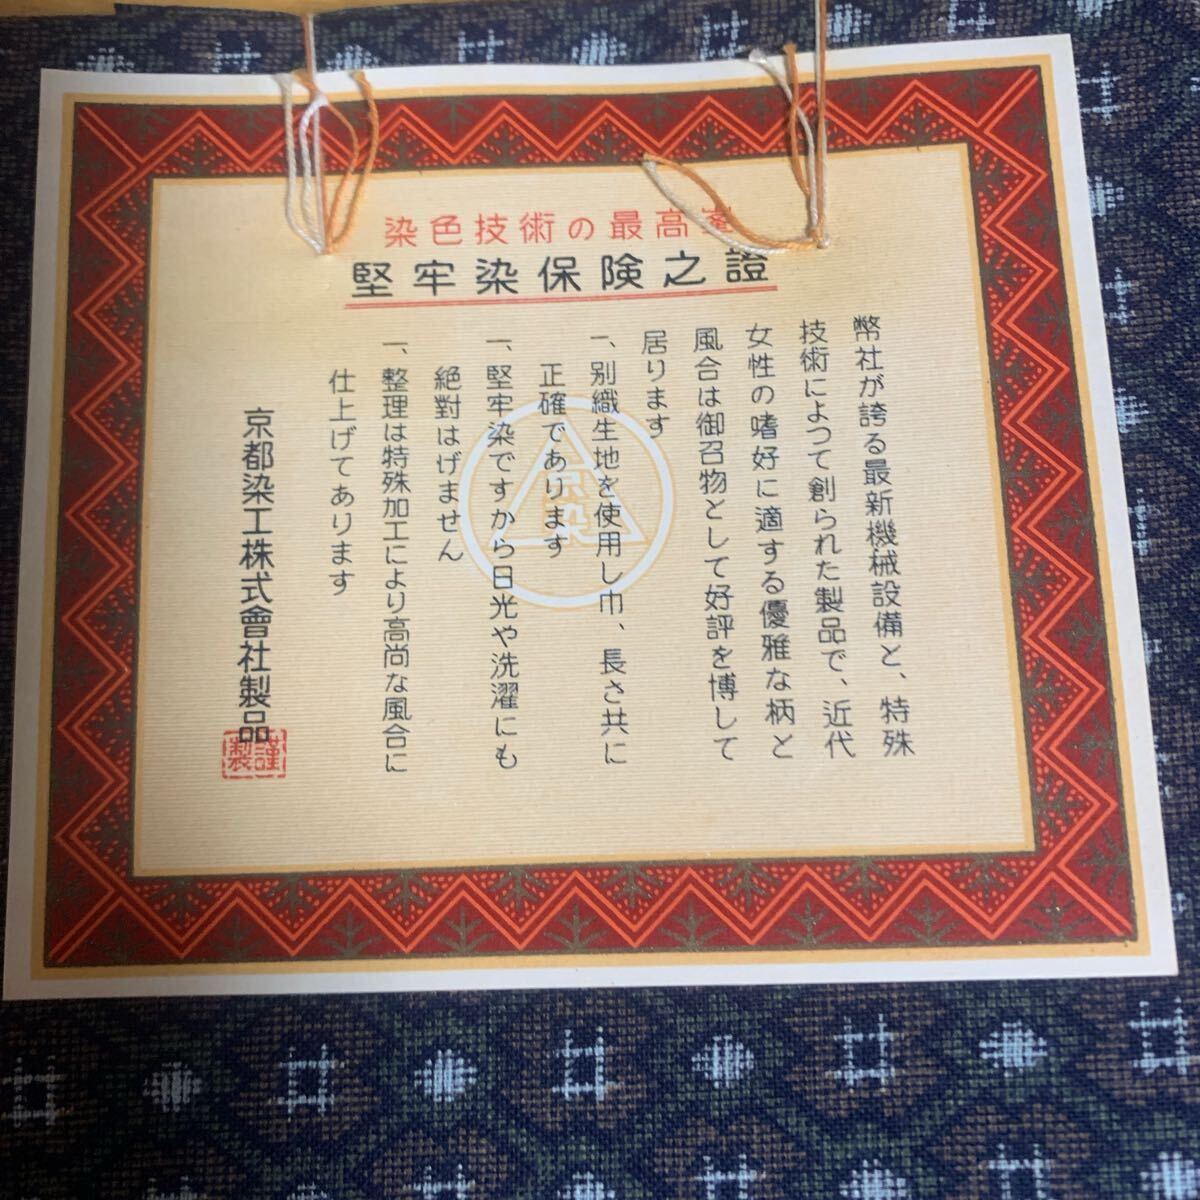 染色技術の最高峯
堅牢染保険之證
幣社が誇る最新機械設備と、特殊
技術によつて創られた製品で、近代
女性の嗜好に適する優雅な柄と
風合は御召物として好評を博して
居ります
一、別織生地を使用し巾、長さ共に
正確であります
一、堅牢染ですから日光や洗濯にも
絶對はげません
一、整理は特殊加工により高尚な風合に
仕上げてあります
京都染工株式會社製品
謹製
京染